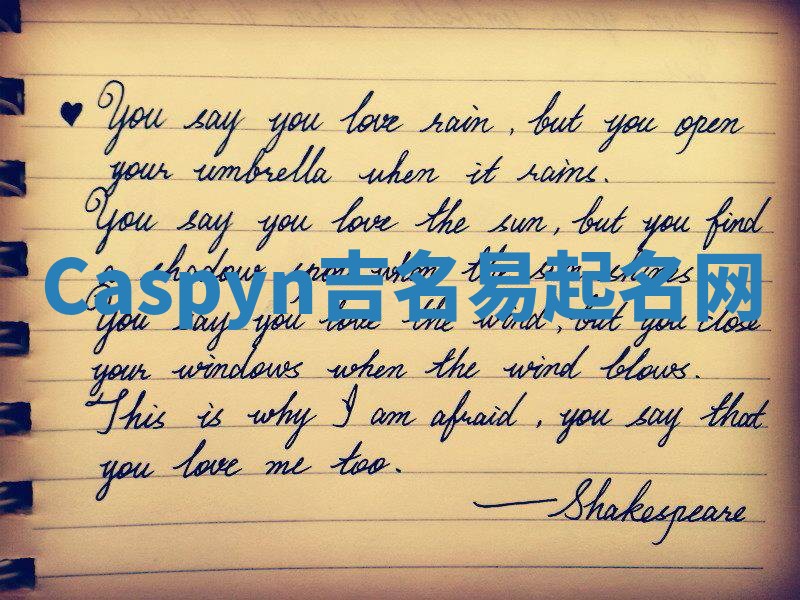 ♥ You say you love rain, but you open
your umbrella when it rains.
You say you love the sun, but you find
a shadow spot when the sun shines
Caspyn吉名易起名网
You say you love the wind, but you close
your windows when the wind blows.
This is why I am afraid, you say that
you love me too.
—Shakespeare